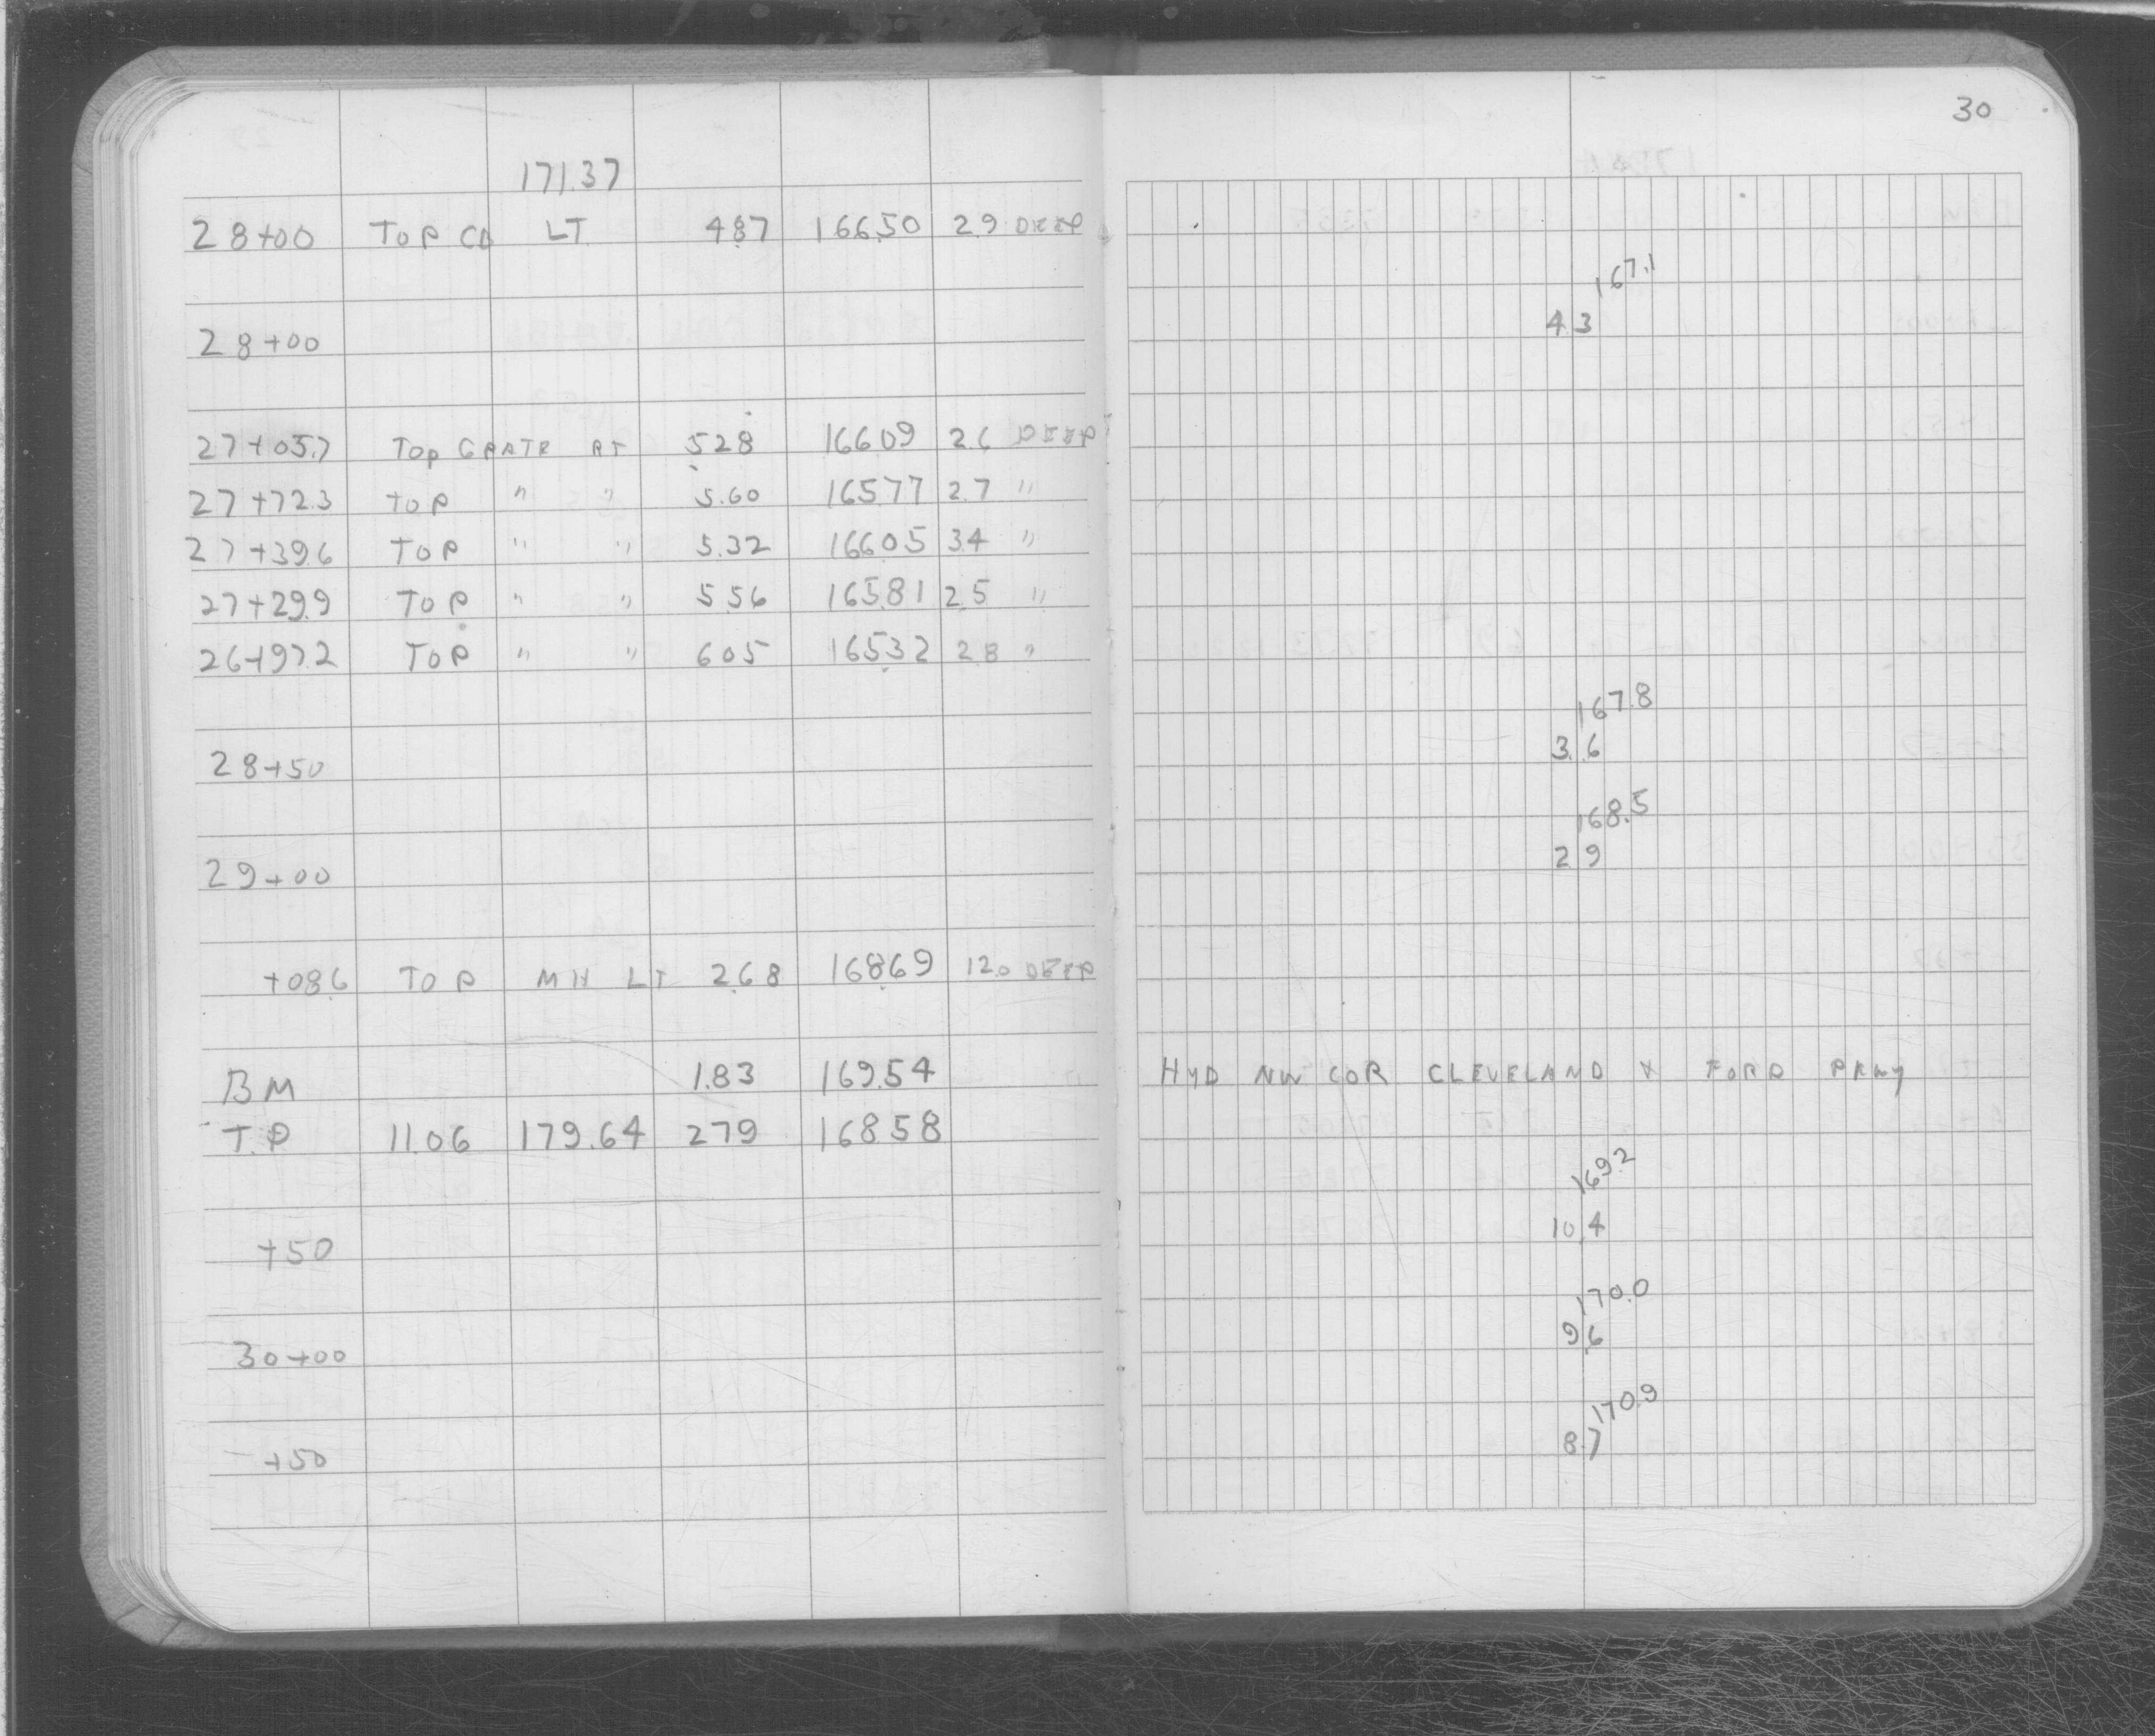 30
171.37
28+00 TOP CB LT 4.87 166.50 2.9 DEEP
167.1
28+00 4.3
27+05.7 TOP GRATE RT 5.28 166.09 2.6 DEEP
27+72.3 TOP " " 5.60 165.77 2.7 "
27+39.6 TOP " " 5.32 166.05 3.4 "
27+29.9 TOP " " 5.56 165.81 2.5 "
26+97.2 TOP " " 6.05 165.32 2.8 "
167.8
28+50 3.6
168.5
29+00 2.9
+08.6 TOP MH LT 2.68 168.69 12.0 DEEP
BM 1.83 169.54 HYD NW COR CLEVELAND & FORD PKWY
T.P 11.06 179.64 2.79 168.58
169.2
+50 10.4
170.0
30+00 9.6
170.9
+50 8.7